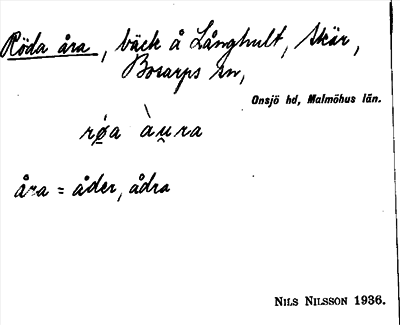 Röda åra, bäck å Långhult, Skär,
Bosarps sn,
Onsjö hd, Malmöhus län.
rø̀a àu̯ra
åra = åder, ådra
NILS NILSSON 1936.